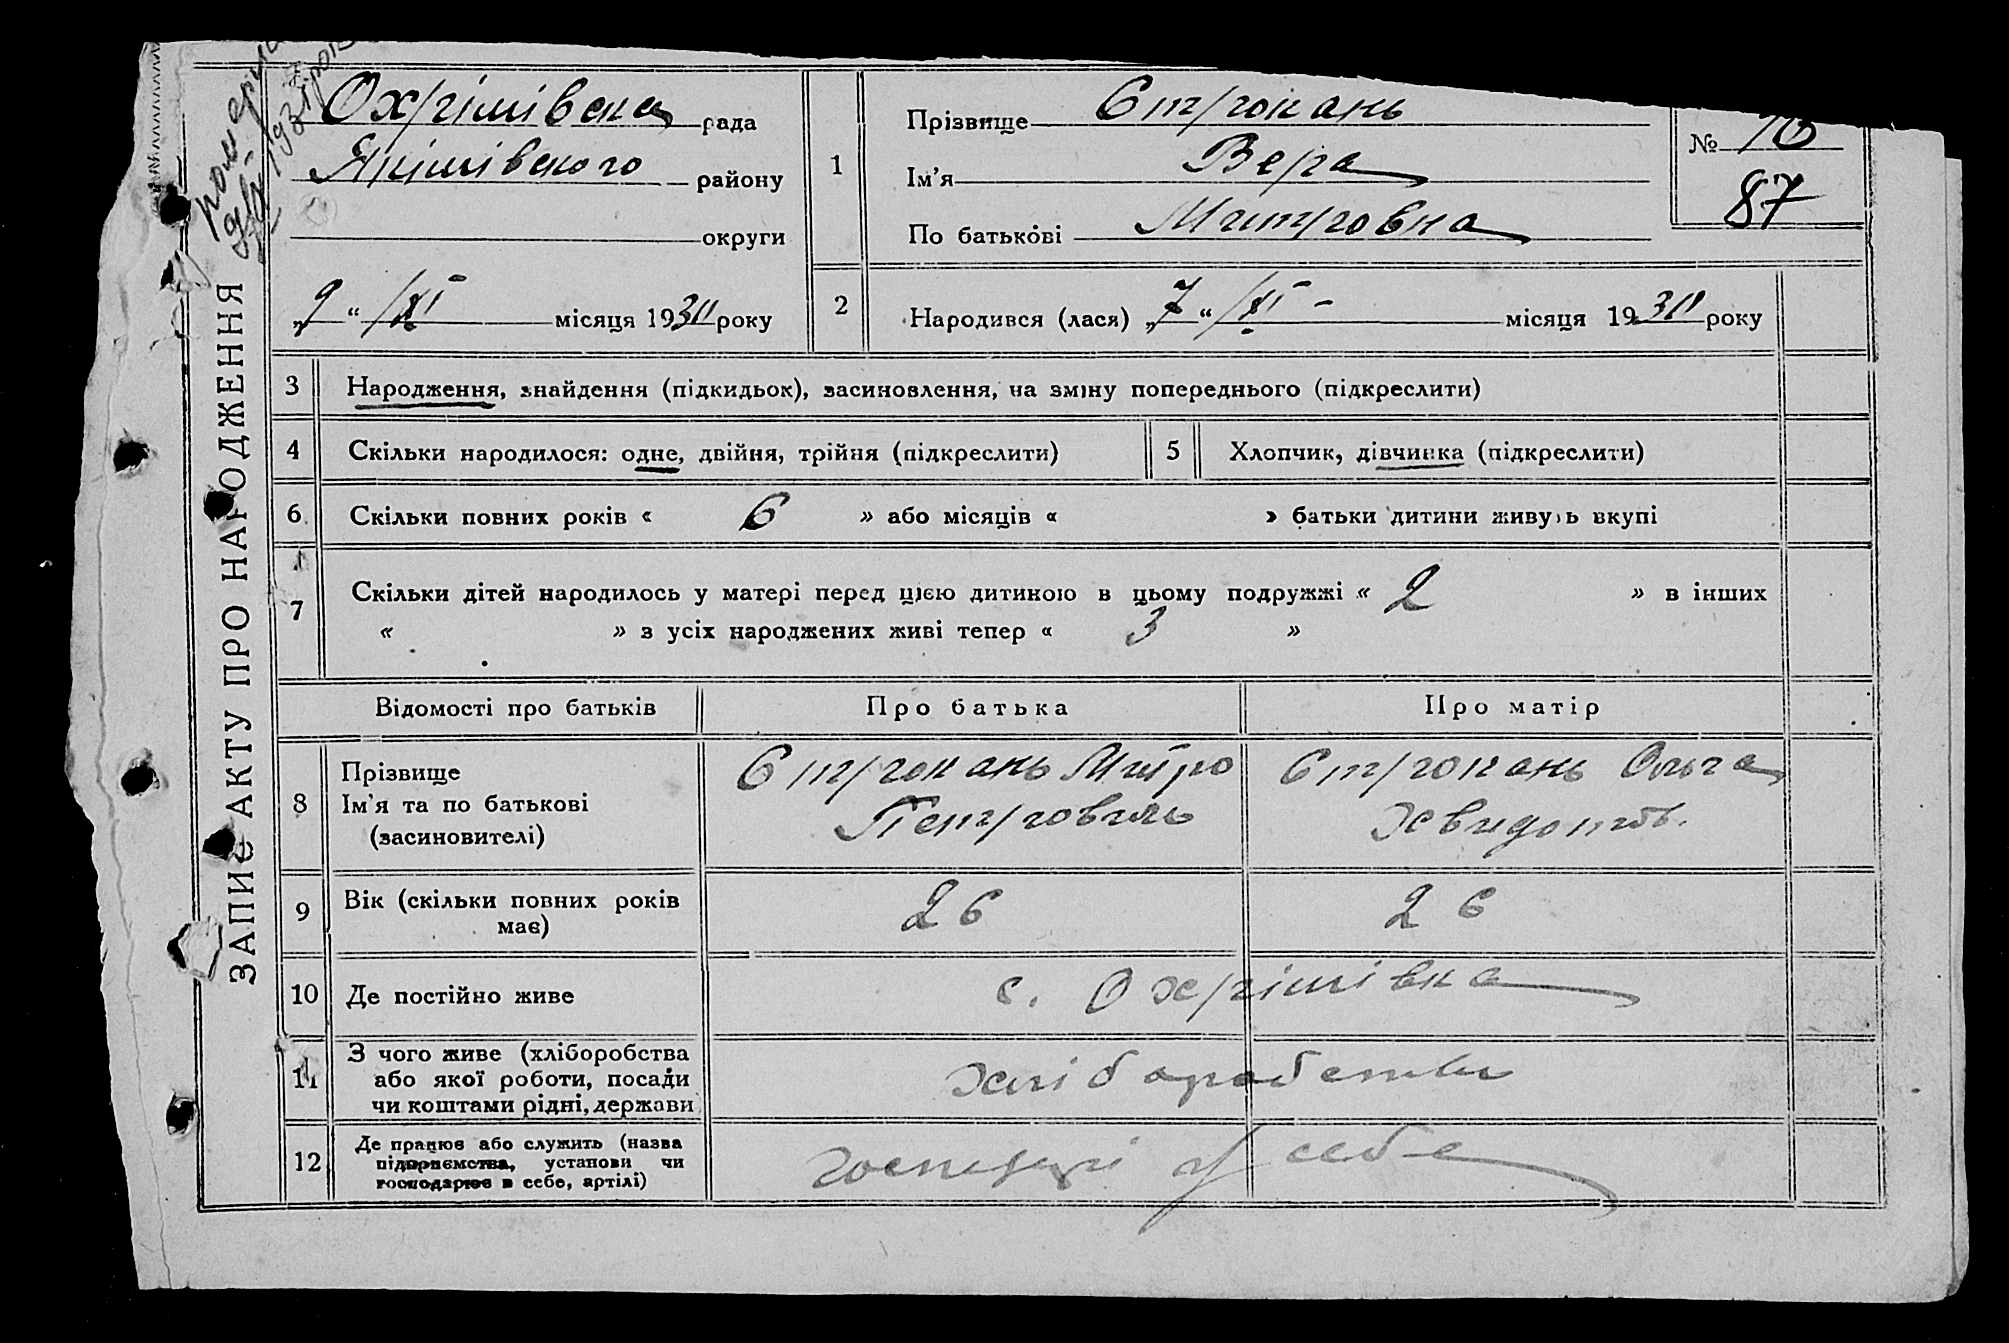 Охрімівська рада
Якимівського району
округи
„9“ /XI місяця 1930 року
1
Прізвище Строкань
Ім’я Вера
По батькові Митровна
№ 76
87
2
Народився (лася) „7“ /XI – місяця 1930 року
ЗАПИС АКТУ ПРО НАРОДЖЕННЯ
3 Народження, знайдення (підкидьок), засиновлення, на зміну попереднього (підкреслити)
4 Скільки народилося: одне, двійня, трійня (підкреслити)
5 Хлопчик, дівчинка (підкреслити)
6 Скільки повних років « 6 » або місяців « » батьки дитини живуть вкупі
7 Скільки дітей народилось у матері перед цією дитиною в цьому подружжі « 2 » в інших
« » з усіх народжених живі тепер « 3 »
Відомості про батьків
Про батька
Про матір
8 Прізвище
Ім’я та по батькові
(засиновителі)
Строкань Митро
Петрович
Строкань Ольга
9 Вік (скільки повних років
має)
26
26
10 Де постійно живе
с. Охрімівка
11 З чого живе (хліборобства
або якої роботи, посади
чи коштами рідні, держави
12 Де працює або служить (назва
підприємства, установи чи
господарює в себе, артілі)
у себе